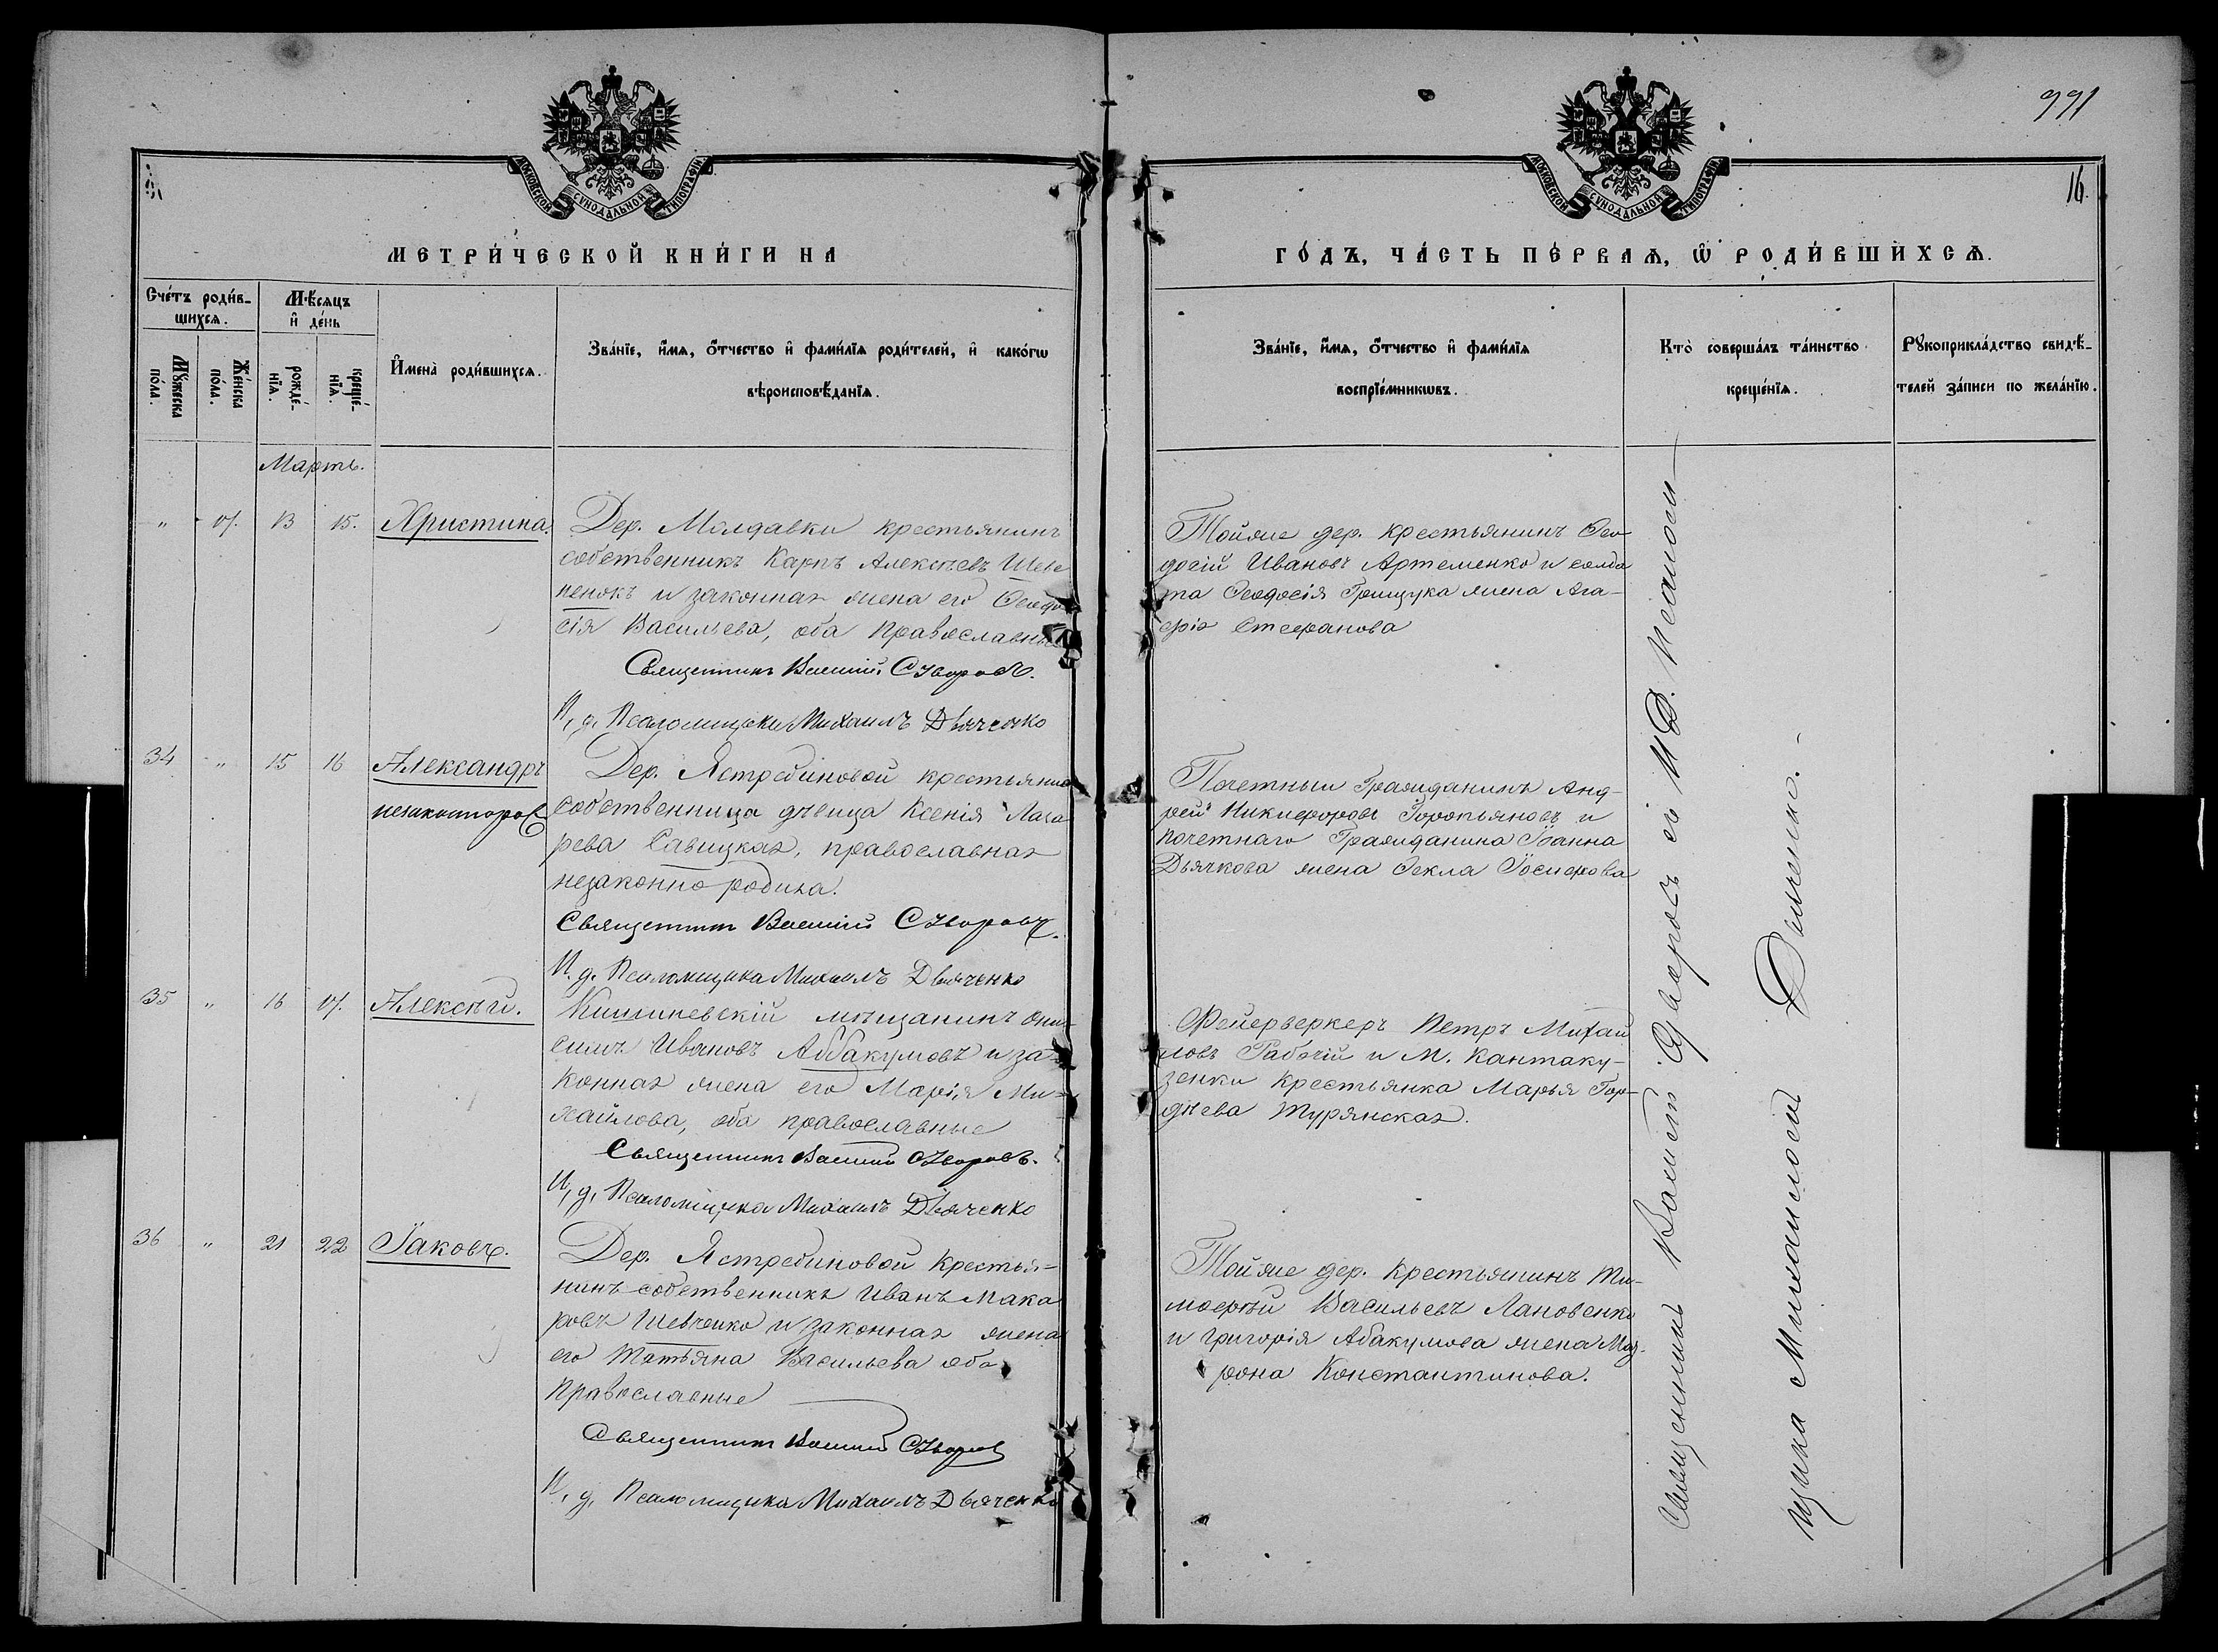 991
16.
МОСКОВСКОЙ СѴНОДАЛЬНОЙ ТИПОГРАФІИ
МОСКОВСКОЙ СѴНОДАЛЬНОЙ ТИПОГРАФІИ
МЕТРИ́ЧЕСКОЙ КНИ́ГИ НА
ГО́ДЪ, ЧА́СТЬ ПЕ́РВАѦ, Ѡ҆ РОДИ́ВШИХСѦ.
Сче́тъ роди́в-
шихсѧ.
Мѣ́сяцъ
и҆ де́нь
Мꙋ́жеска
по́ла.
Же́нска
по́ла.
рожде́-
нїѧ.
креще́-
нїѧ.
И҆мена̀ роди́вшихсѧ.
Зва́нїе, и҆́мѧ, ѻ҆́тчество и҆ фами́лїѧ роди́телей, и҆ како́гѡ
вѣроисповѣ́данїѧ.
Зва́нїе, и҆́мѧ, ѻ҆́тчество и҆ фами́лїѧ
воспрїе́мникѡвъ.
Кто̀ соверша́лъ та́инство
креще́нїѧ.
Рꙋкоприкла́дство свидѣ́-
телей за́писи по жела́нїю.
Мартъ.
" 17. 13 15. Христина.
Дер. Молдавки крестьянинъ
собственникъ Карпъ Алексѣевъ Шев
ченокъ и законная жена его Ѳеодо
сія Васильева, оба православные
Священникъ Василій Суворовъ.
И, д, Псаломщика Михаилъ Дьяченко
Тойже дер. крестьянинъ Ѳео
досій Ивановъ Артеменко и солда
та Ѳеодосія Грищука жена Ага-
фія Стефанова
34 " 15 16 Александръ
незаконнорож
Дер. Ястребиновой крестьянка
собственница дѣвица Ксенія Лаза
рева Савицкая, православная
незаконно родила.
Священникъ Василій Суворовъ.
И. д. Псаломщика Михаилъ Дьяченко
Почетный Гражданинъ Анд-
рей Никифоровъ Горопьяновъ и
почетнаго Гражданина Іоанна
Дьячкова жена Ѳекла Іосифова
35 " 16 17. Алексѣй.
Кишиневскій мѣщанинъ Они
симъ Ивановъ Аббакумовъ и за-
конная жена его Марія Ми-
хайлова, оба православные
Священникъ Василій Суворовъ.
И, д, Псаломщика Михаилъ Дьяченко
Фейерверкеръ Петръ Михай
ловъ Рабочій и М. Кантаку-
зенки крестьянка Марья Гор-
дѣева Турянская.
36 " 21 22 Іаковъ.
Дер. Ястребиновой крестья-
нинъ собственникъ Иванъ Мака
ровъ Шевченко и законная жена
его Татьяна Васильева оба
православные
Священникъ Василій Суворовъ
И, д, Псаломщика Михаилъ Дьяченко
Тойже дер. крестьянинъ Ти-
моѳей Васильевъ Лановенко
и Григорія Абакумова жена Мат-
рона Константинова.
Священникъ Василій Суворовъ съ И.Д. Псалом
щика Михаиломъ Дьяченко.